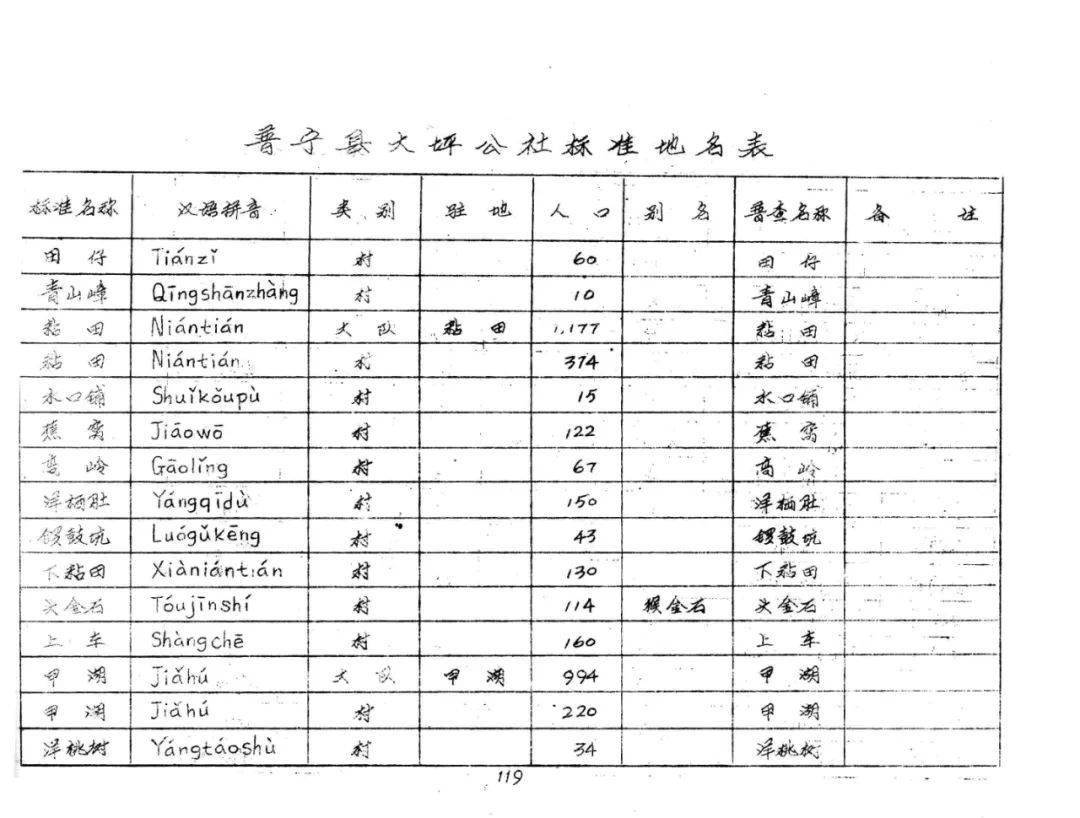 普宁县大坪公社标准地名表
标准名称 汉语拼音 类别 驻地 人口 别名 普查名称 备注
田仔 Tiánzǐ 村 60 田仔
青山嶂 Qīngshānzhàng 村 10 青山嶂
黏田 Niántián 大队 黏田 1,177 黏田
黏田 Niántián 村 374 黏田
水口铺 Shuǐkǒupù 村 15 水口铺
蕉窝 Jiāowō 村 122 蕉窝
高岭 Gāolǐng 村 67 高岭
洋栖肚 Yángqīdù 村 150 洋栖肚
锣鼓坑 Luógǔkēng 村 43 锣鼓坑
下黏田 Xiàniántián 村 130 下黏田
头金石 Tóujīnshí 村 114 猴金石 头金石
上车 Shàngchē 村 160 上车
甲湖 Jiǎhú 大队 甲湖 994 甲湖
甲湖 Jiǎhú 村 220 甲湖
洋桃树 Yángtáoshù 村 34 洋桃树
119